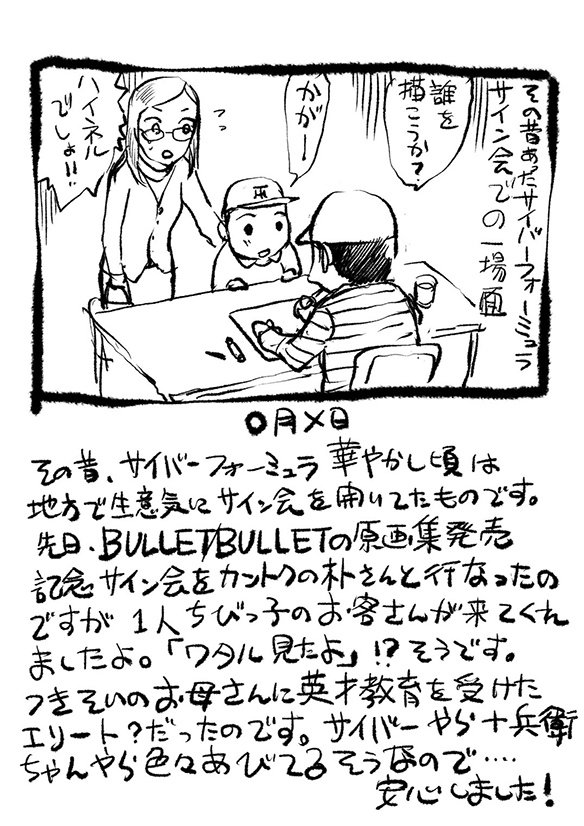 その昔あったサイバーフォーミュラ
サイン会での一場面
誰を
描こうか?
かがー
ハイネル
でしょ!!
〇月×日
その昔、サイバーフォーミュラ 華やかし頃は
地方で生意気にサイン会を開いてたものです。
先日、BULLET/BULLETの原画集発売
記念サイン会をカントクの朴さんと行なったの
ですが 1人ちびっ子のお客さんが来てくれ
ましたよ。「ワタル見たよ」!?そうです。
つきそいのお母さんに英才教育を受けた
エリート?だったのです。サイバーやら十兵衛
ちゃんやら色々あびてるそうなので‥‥
安心しました!